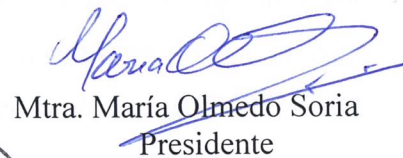 María O
Mtra. María Olmedo Soria
Presidente